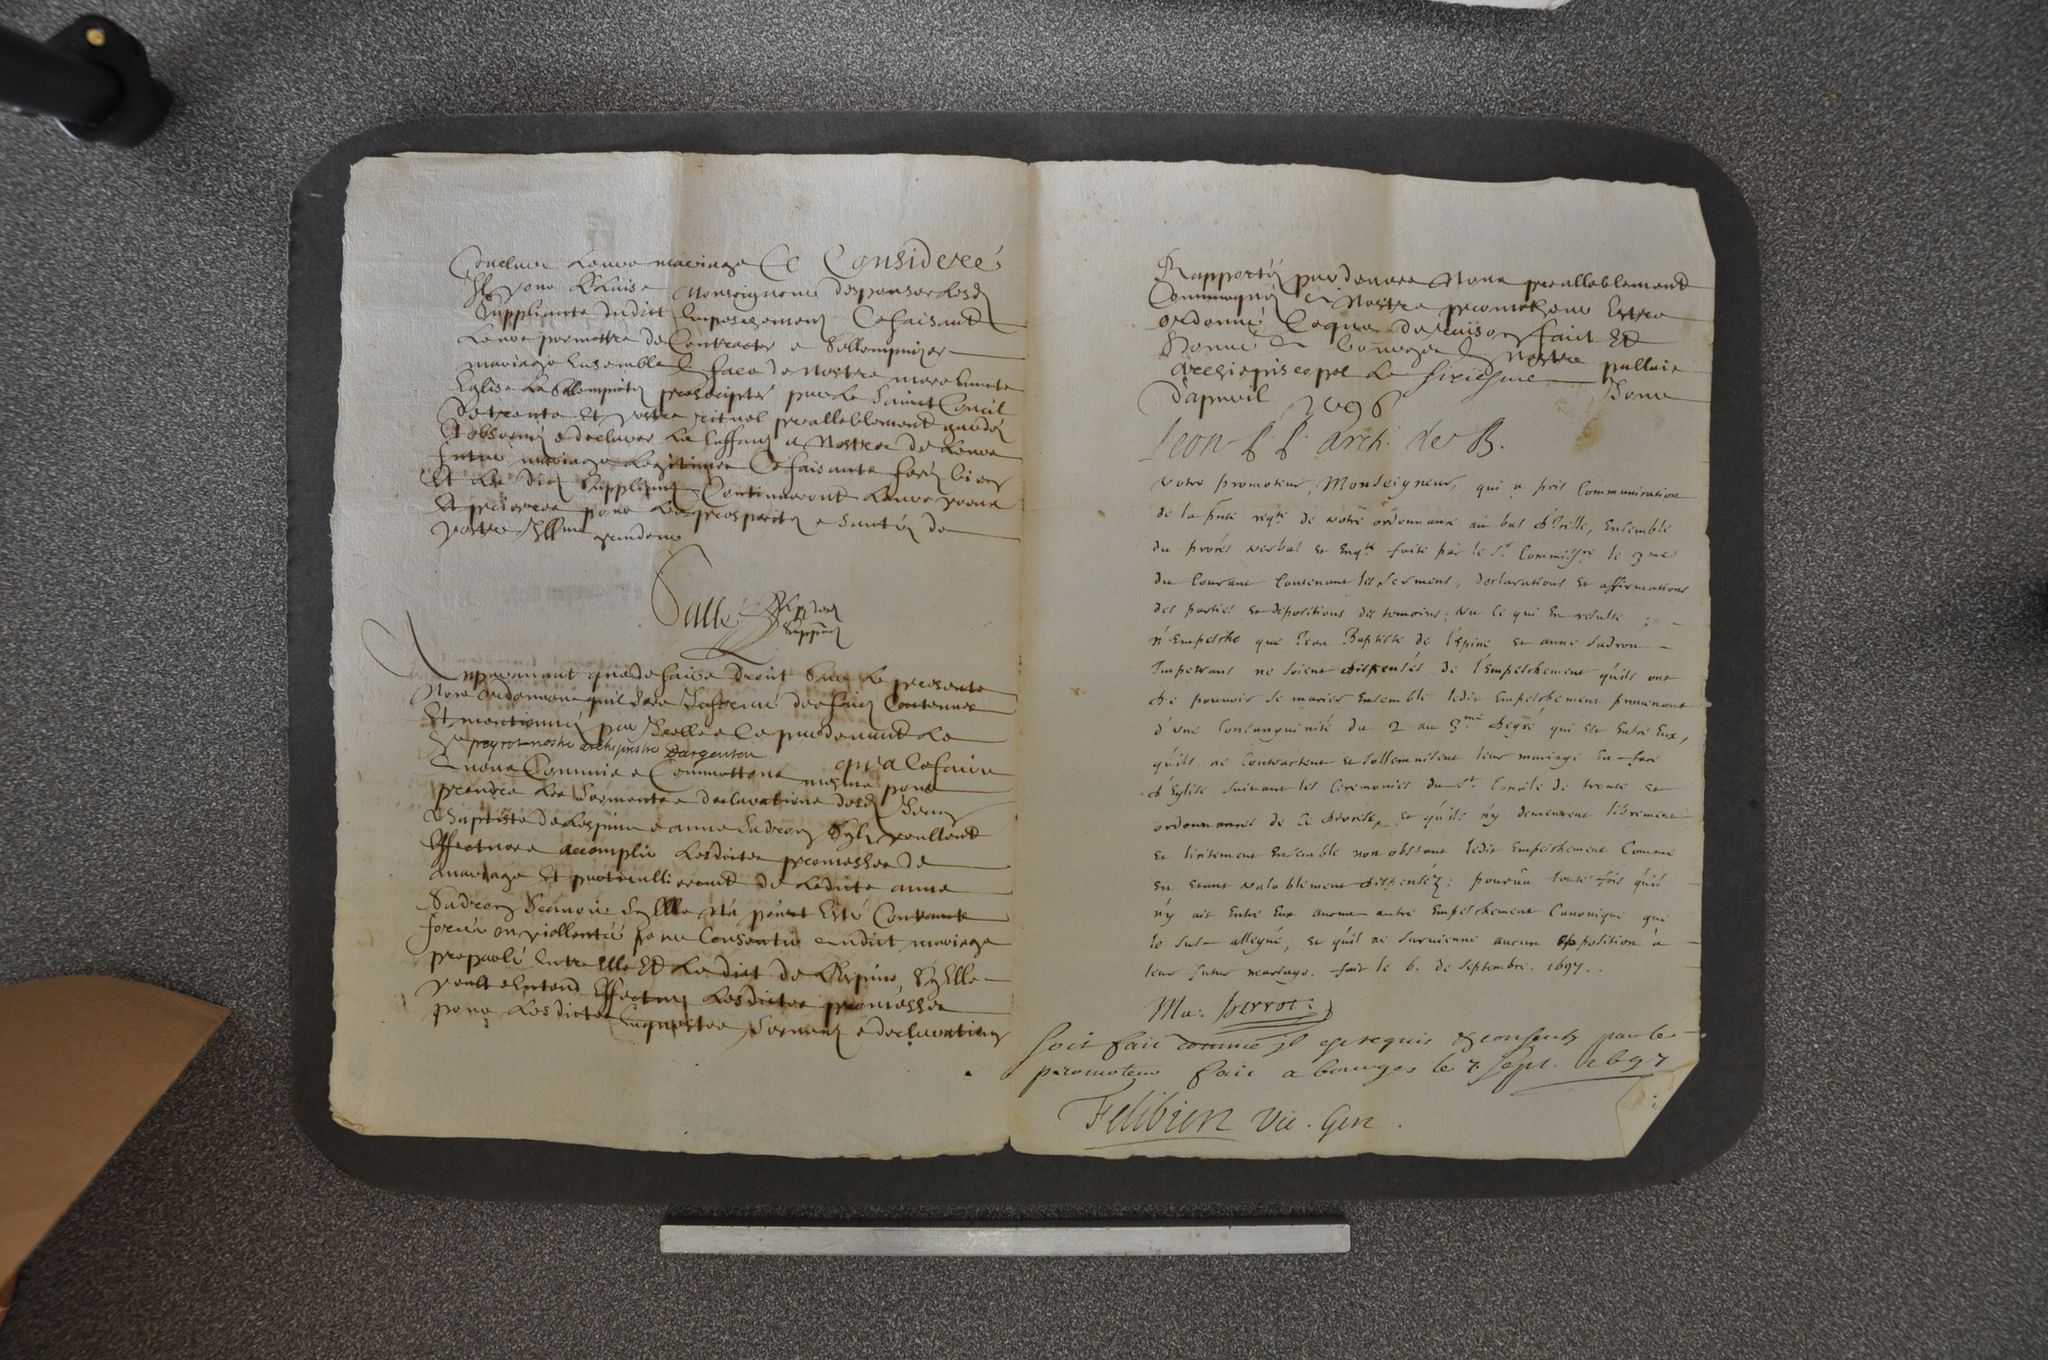 conclure leur mariage Ce Consideré
Il vous Plaise Monseigneur dispenser lesd
Suppliants dudict Empeschement Ce faisant
Leur permettre de Contracter & Sollempnizer
mariage Ensemble En face de Nostre mere Saincte
Eglise les Solempnités prescriptes par le Sainct Concil
de trente Et vostre rituel preallablement gardés
& observés & declarer
futur mariage legitimes Ce faisant ferez bien
Et les dits Supplians Continueront leurs vœux
Et prieres pour la prosperité & Santé de
vostre Illme grandeur
Sallé
Auparavant que de faire droit Sur la presente
Nous ordonnons quil Sera Informé des faits Contenus
Et mentionnés par Icelle & Ce pardevant le
Sr peyrot nostre archiprestre Dargenton
que nous Commis & Commettons qua le faire
mesme pour
prendre les Serments & declarations desd Jean
Baptiste de Lespine & anne Sadron Sils veullent
Effectuer & accomplir lesdictes promesses de
mariage Et particullierement de ladicte anne
Sadron Scavoir Sy Elle Na point Esté Contrainte
forcée ou viollentée pour Consentir audict mariage
proparlé Entre Elle Et le dict de Lespine, Sy Elle
veult & Entend Effectuer lesdictes promesses
pour lesdictes Enquestes, Serment & declarations
Rapportés pardevers Nous preallablement
Communiqués a Nostre promotheur Estre
ordonné Ce que de raison fait Et
Donné a Bourges En Nostre pallais
Archiepiscopal le sixiesme Jour
Dapvril 1696
Leon P. P. arch. de B.
Votre promoteur, Monseigneur, qui a pris Communication
de la pnte reqte de votre ordonnance au bas d'icelle, Ensemble
du procés verbal et Enqte faite par le Sr Commissre le 3me
du Courant Contenant les Serment, declarations et affirmations
des parties et depositions des temoins; vu ce qui En resulte;
n'Empesche que Jean Baptiste de l'Epine et anne Sadron
Impetrans ne soient dispensés de l'Empeschement qu'ils ont
de pouvoir se marier Ensemble ledit Empeschement provenant
d'une Consanguinité du 2 au 3me degré qui est Entre Eux,
qu'ils ne Contractent et sollemnisent leur mariage En face
d'Eglise suivant les Ceremonies du St Concile de trente et
ordonnances de Ce diocese, et qu'ils n'y demeurent librement
et licitement Ensemble non obstant ledit Empeschement Comme
En Etant valablement dispensez: pourvu toute fois qu'il
n'y ait Entre Eux aucun autre Empeschement Canonique que
le sus-allegué, et qu'il ne survienne aucun opposition a
leur futur mariage. fait le 6. de Septembre. 1697.
Ma: perrot:
Soit fait comme Il est requis & consenty par le
promoteur fait a bourges le 7. Sept. 1697
Felibien Vic. Gen.